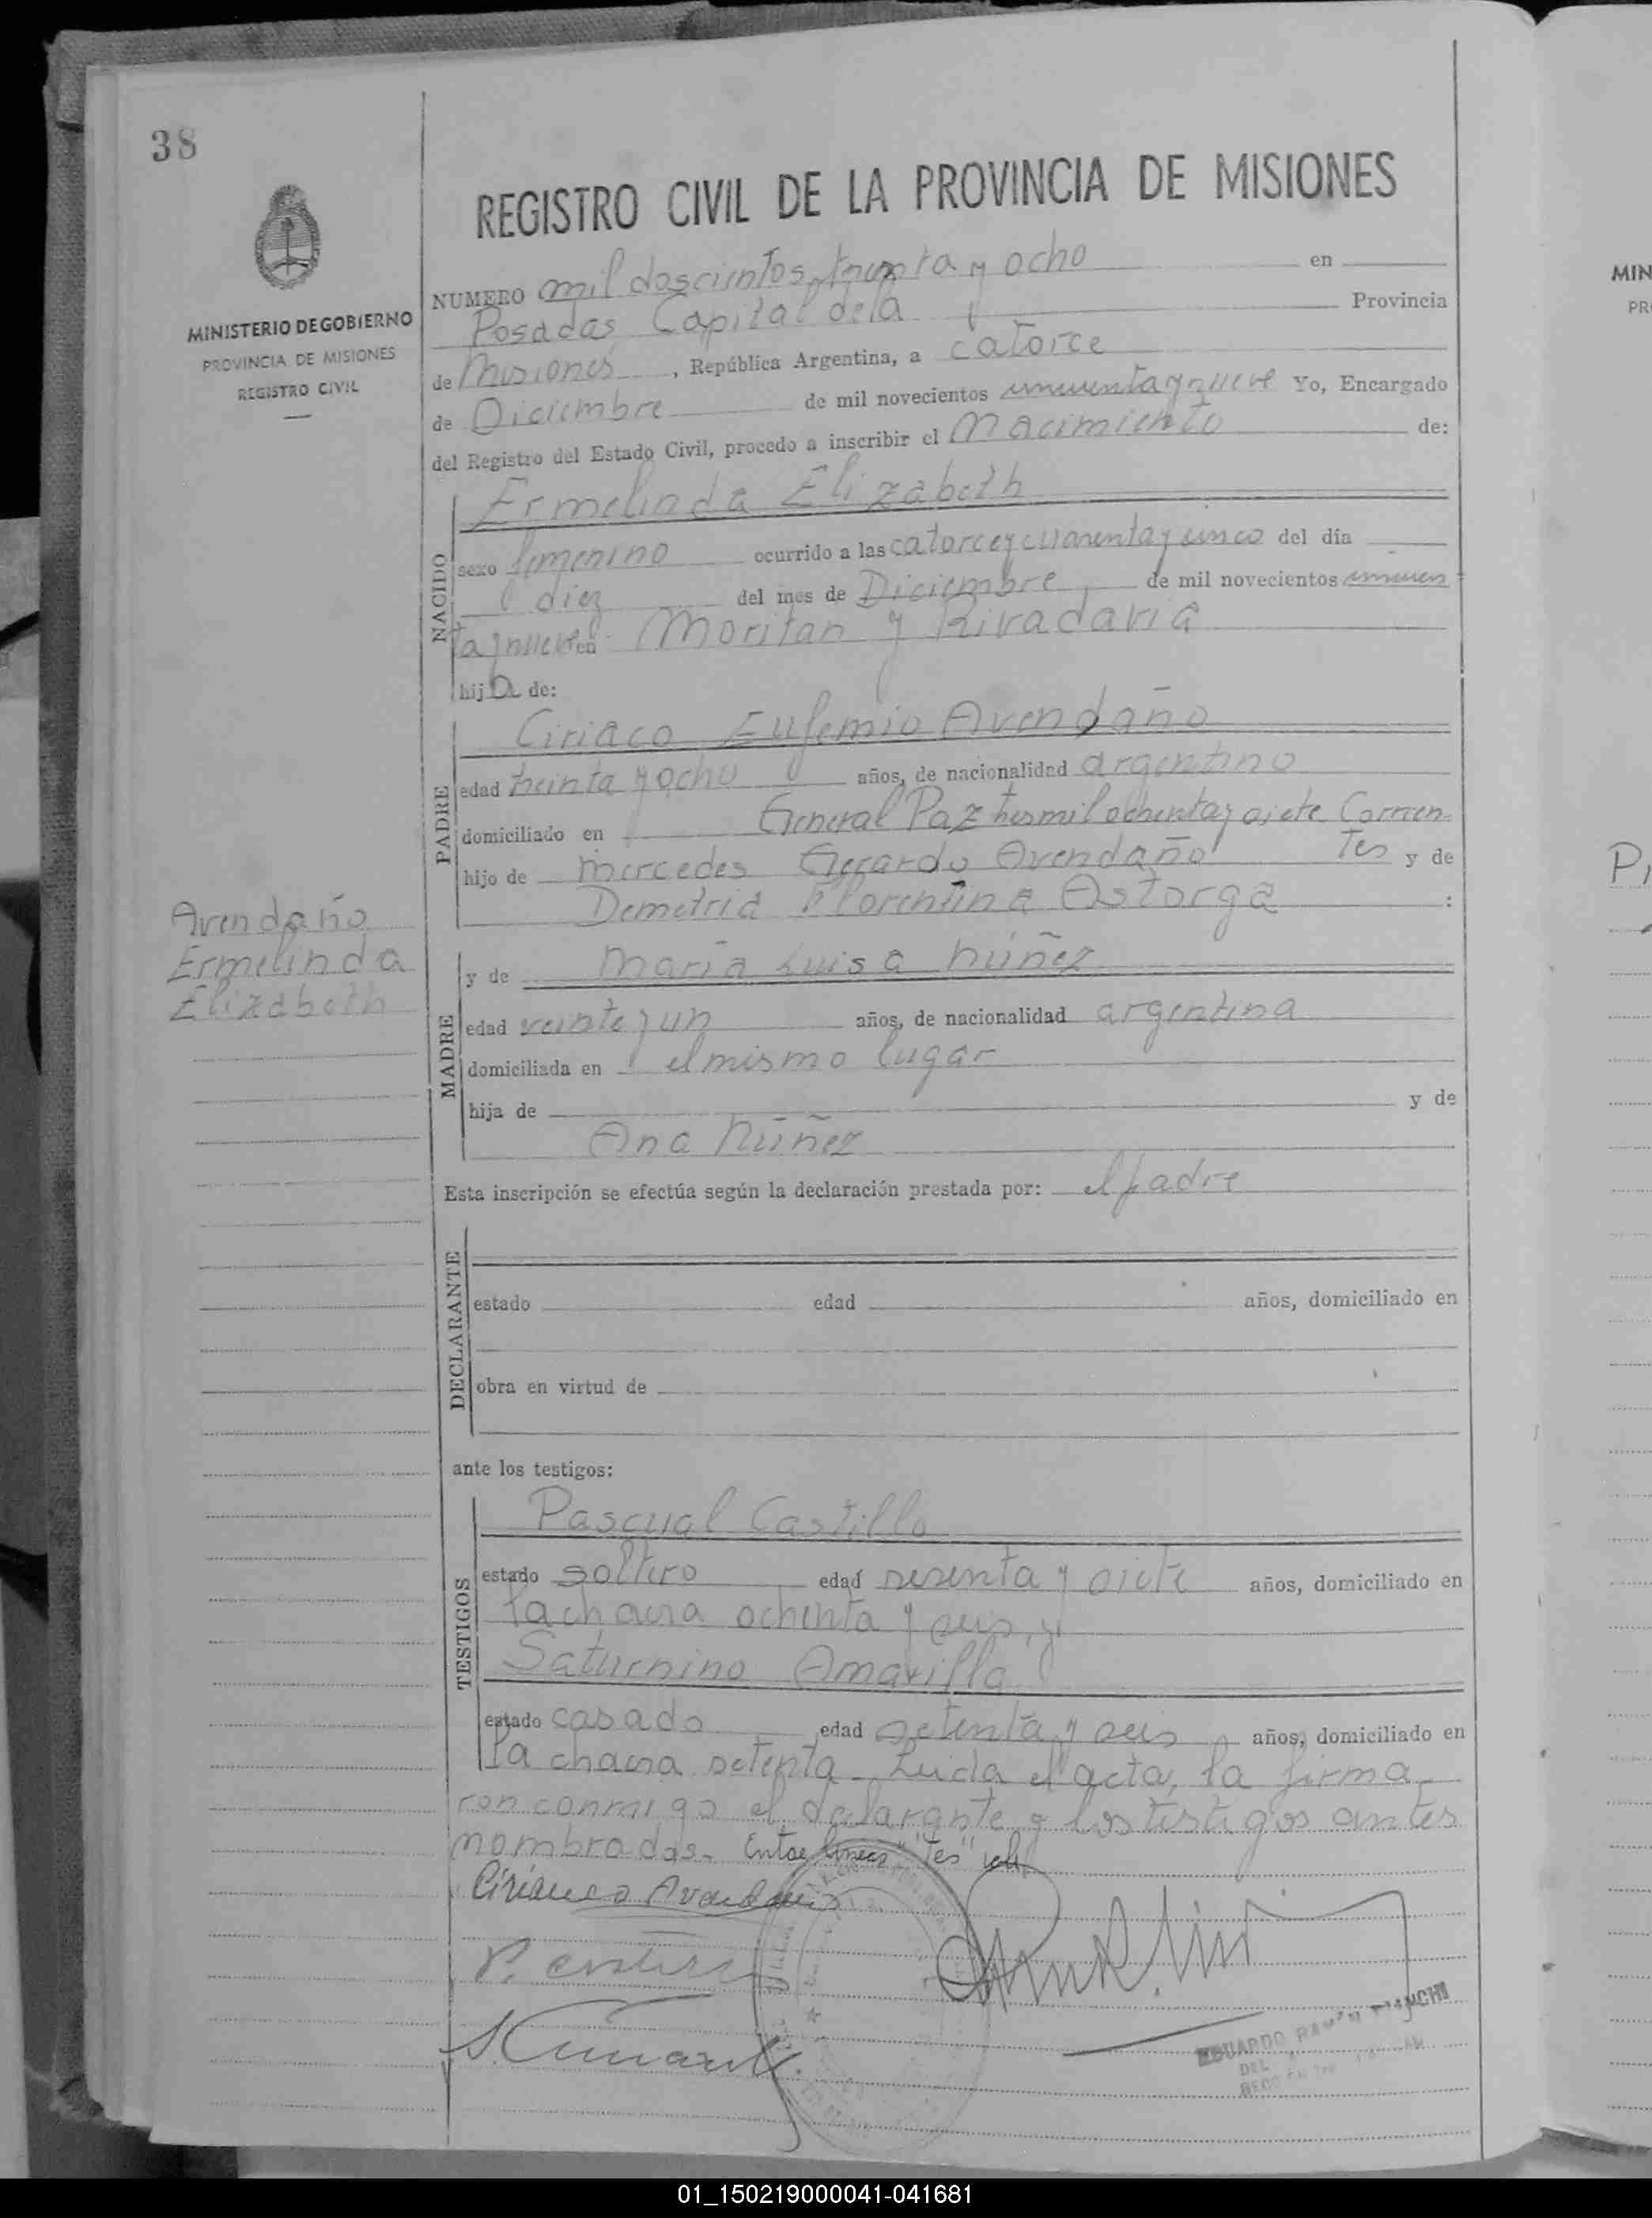 38
MINISTERIO DE GOBIERNO
PROVINCIA DE MISIONES
REGISTRO CIVIL
REGISTRO CIVIL DE LA PROVINCIA DE MISIONES
NUMERO mil doscientos treinta y ocho en
Posadas, Capital de la Provincia
de Misiones, República Argentina, a catorce
de Diciembre de mil novecientos cincuenta y nueve Yo, Encargado
del Registro del Estado Civil, procedo a inscribir el Nacimiento de:
NACIDO
Ermelinda Elizabeth
sexo femenino ocurrido a las catorce y cuarenta y cinco del día
diez del mes de Diciembre, de mil novecientos cincuen
ta y nueve en Moritan y Rivadavia
hija de:
PADRE
Ciriaco Eufemio Avendaño
edad treinta y ocho años, de nacionalidad argentino
domiciliado en General Paz tresmil ochenta y siete Corrien
hijo de Mercedes Gerardo Avendaño Tes y de
Demetria Florentina Astorga :
MADRE
y de María Luisa Núñez
edad veinte y un años, de nacionalidad argentina
domiciliada en el mismo lugar
hija de y de
Ana Núñez
Avendaño
Ermelinda
Elizabeth
Esta inscripción se efectúa según la declaración prestada por: el padre
DECLARANTE
estado edad años, domiciliado en
obra en virtud de
ante los testigos:
TESTIGOS
Pascual Castillo
estado soltero edad sesenta y siete años, domiciliado en
la chacra ochenta y seis, y
Saturnino Amarilla
estado casado edad setenta y seis años, domiciliado en
la chacra setenta. Leida el acta, la firma
ron conmigo el declarante y los testigos antes
nombrados. Entre lineas "Tes" vale
Ciriaco Avendaño
EDUARDO RAMON BIANCHI
DEL
MIN
PR
01_150219000041-041681